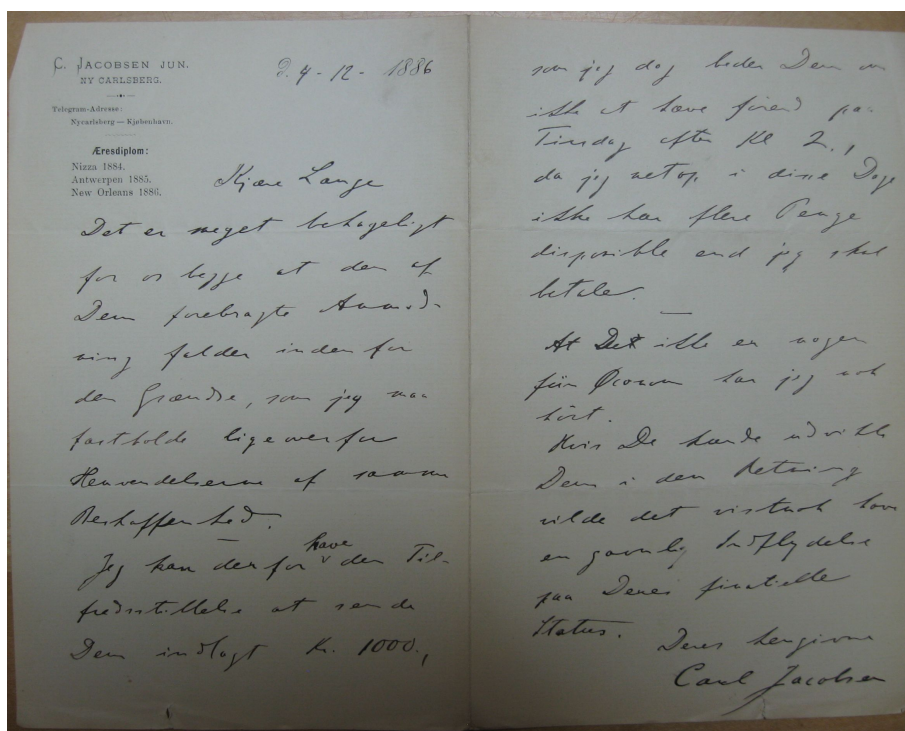 C. JACOBSEN JUN.
NY CARLSBERG.
Telegram-Adresse:
Nycarlsberg — Kjøbenhavn.
Æresdiplom:
Nizza 1884.
Antwerpen 1885.
New Orleans 1886.
d. 4-12-1886
Kjære Lange
Det er meget behageligt
for os begge at den af
Dem forebragte Anmod-
ning falder inden for
den Grændse, som jeg maa
fastholde ligeoverfor
Henvendelserne af samme
Beskaffenhed.
Jeg kan derfor have den Til-
fredsstillelse at sende
Dem indlagt Kr. 1000.,
som jeg dog beder Dem om
ikke at hæve førend paa
Tirsdag efter Kl 2.,
da jeg netop i disse Dage
ikke har flere Penge
disponible end jeg skal
betale.
At De ikke er nogen
fiin Øconom har jeg nok
hørt.
Hvis De kunde udvikle
Dem i den Retning
vilde det vistnok have
en gavnlig Indflydelse
paa Deres finatielle
Status.
Deres hengivne
Carl Jacobsen